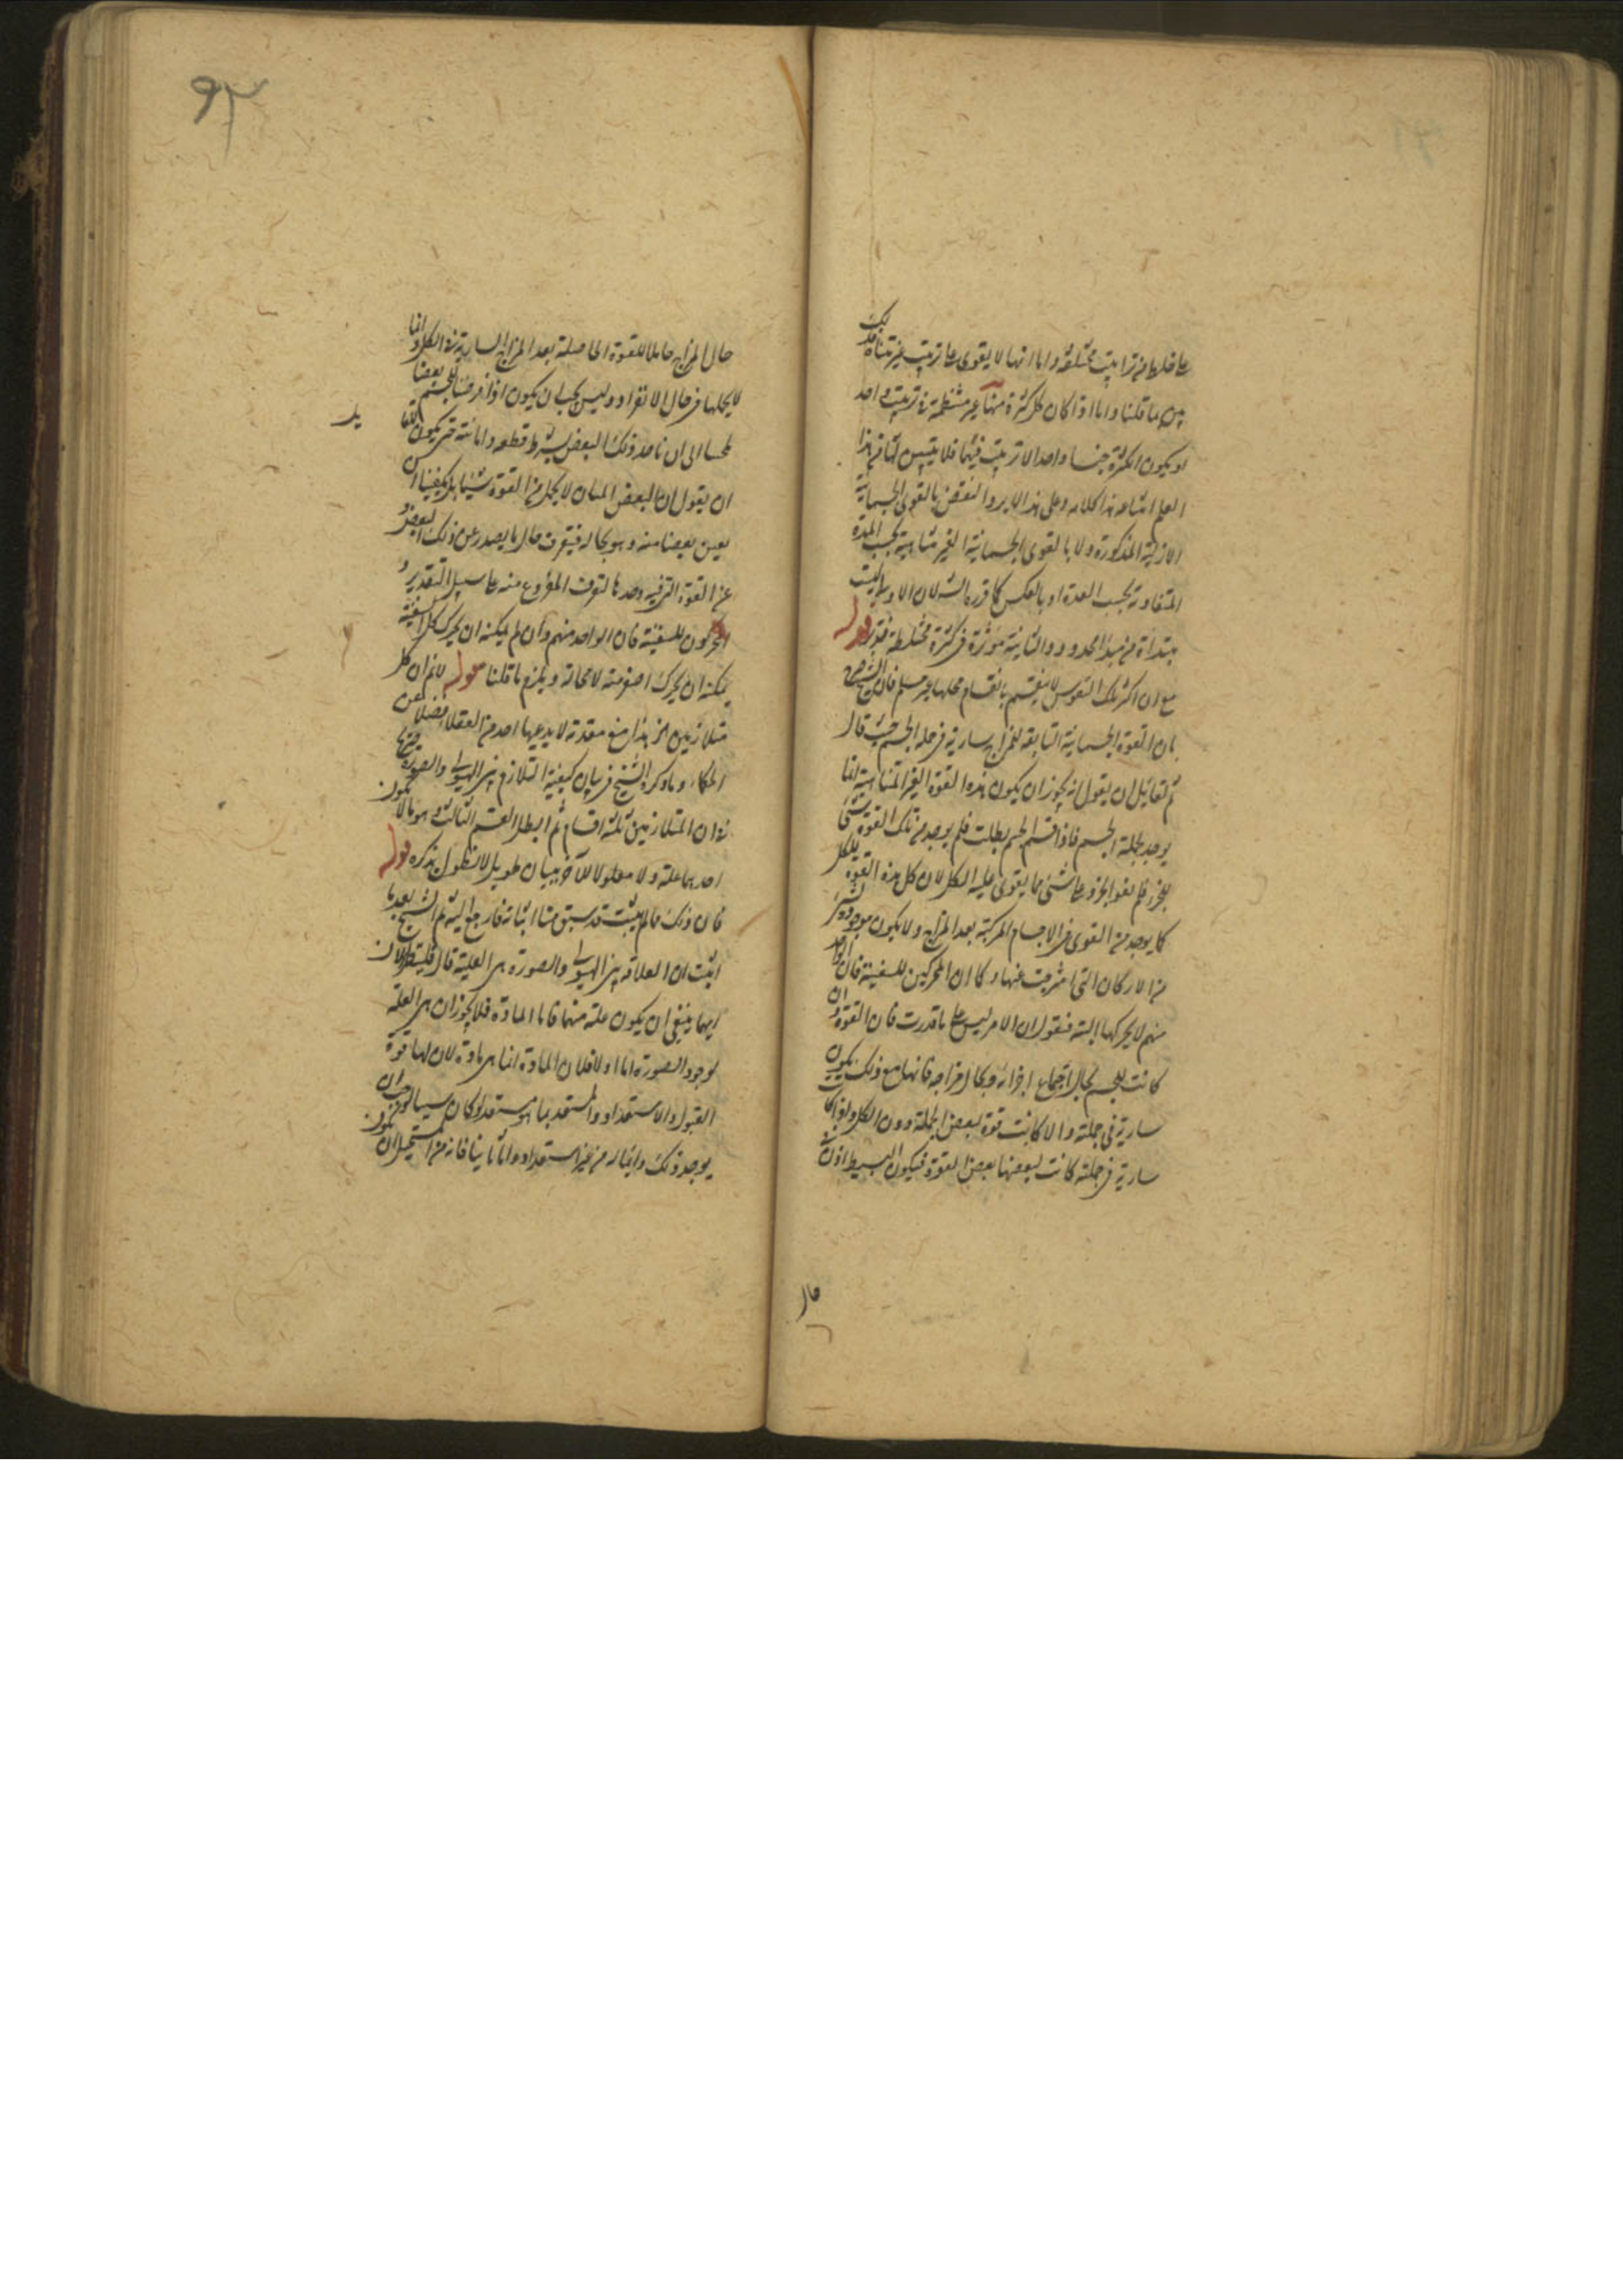 على قليلها من تراتيب مختلفة واما انها لا يقوى على ترتيب غير متناه فذلك
بين بما قلنا واما اذا كان كل كثرة منها غير منتظمة في ترتيب واحد
او يكون الكثرة جنسا واحدا لا ترتيب فيها فلا يتبين لنا من هذا
العلم امتناعه هذا كلامه وعلى هذا لا يرد النقض بالقوى الجسمانية
الازلية المذكورة ولا بالقوى الجسمانية الغير متناهية بحسب المدة
المتفاوتة بحسب العدة او بالعكس كما قرره الش لان الاولى ليست
مبتدأة من مبدأ محدود والثانية مؤثرة في كثرة مختلطة فتدبر قوله
مع ان اكثر تلك النفوس لا ينقسم بانقسام محلها غير مسلم فان الشيخ صرح
بان القوة الجسمانية التابعة للمزاج سارية في حلة الجسم حيث قال
ثم لقائل ان يقول انه يجوز ان يكون هذه القوة الغير المتناهية انما
يوجد بجملة الجسم فاذا قسم الجسم بطلت فلم يوجد من تلك القوة شئ
للجزء فلم يقو الجزء على شئ مما يقوى عليه الكل لان كل هذه القوة للكل
كما يوجد من القوى في الاجسام المركبة بعد المزاج ولا يكون موجودة لشئ
من الاركان التي امتزجت عنها وكما ان المحركين للسفينة فان الواحد
منهم لا يحركها البتة فنقول ان الامر ليس على ما قدرت فان القوة وان
كانت للجسم بحال اجتماع اجزائه وبحال مزاجه فانها مع ذلك يكون
سارية في جملته والا كانت قوة لبعض الجملة دون الكل ولو اذا كانت
سارية في جملته كانت لبعضها بعض القوة فيكون البسيط اذن
حال
٩٢
حال المزاج حاملا للقوة الحاصلة بعد المزاج السارية في الكل وانما
لا يحملها في حال الانفراد وليس يجب ان يكون اذا فرضنا للجسم بعضا
ان يقول ان البعض المبان لا يحمل من القوة شيئا بل يكفينا ان
يعين بعضا منه وهو بحاله فيتعرف حال ما يصدر عن ذلك البعض و
عن القوة التي فيه وحدها لتعرف المفروع منه على سبيل التقدير و
المحركون للسفينة فان الواحد منهم وان لم يمكنه ان يحرك كل السفينة
يمكنه ان يحرك اصغر منه لا محالة ويلزم ما قلنا قوله لا نم ان كل
متلازمين الخ هذا منع مقدمة لا يدعيها احد من العقلاء فضلا عن
الحكماء وما ذكره الشيخ في بيان كيفية التلازم بين الهيولى والصورة
في ان المتلازمين ثلثة اقسام ثم ابطل القسم الثالث وهو ما لا يكون
احدهما علة ولا معلولا للآخر ببيان طويل لا نطول بذكره قوله
فان ذلك مما لم يثبت قد سبق منا اثباته فارجع اليه ثم الشيخ بعد ما
اثبت ان العلاقة بين الهيولى والصورة هي العلية قال فلينظر الان
ايهما ينبغي ان يكون علة منهما فاما المادة فلا يجوز ان هي العلة
لوجود الصورة اما اولا فلان المادة انما هي مادة لان لها قوة
القبول والاستعداد والمستعد بما هو مستعد لا يكون سببا لوجود
يوجد ذلك دائما له من غير استعداد واما ثانيا فانه من المستحيل ان يكون